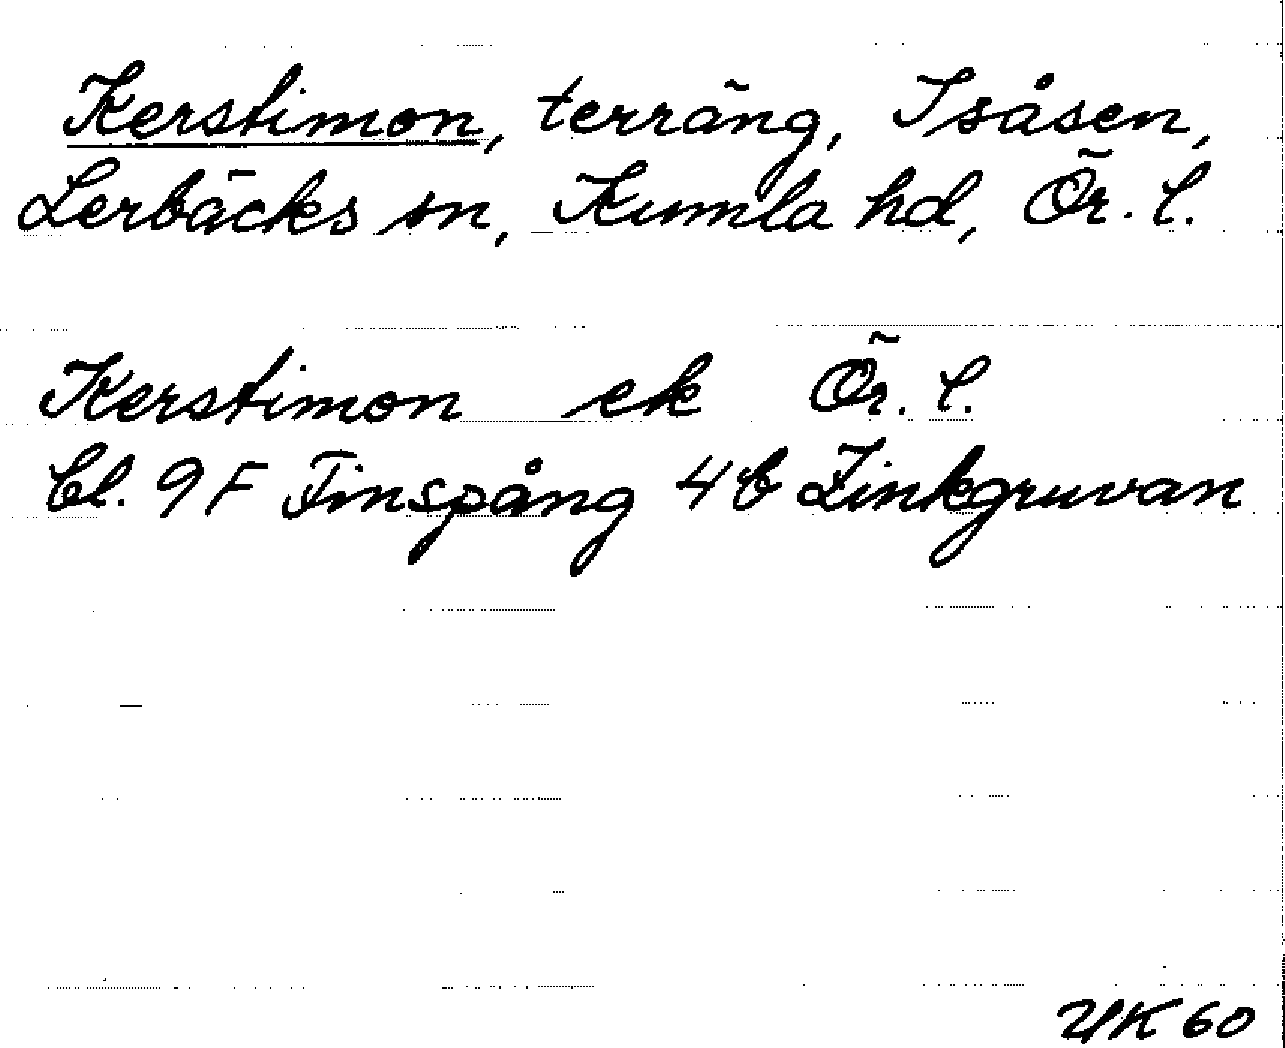 Kerstimon, terräng, Isåsen,
Lerbäcks sn, Kumla hd, Ör. l.
Kerstimon ek Ör. l.
bl. 9F Finspång 4b Zinkgruvan
UK 60